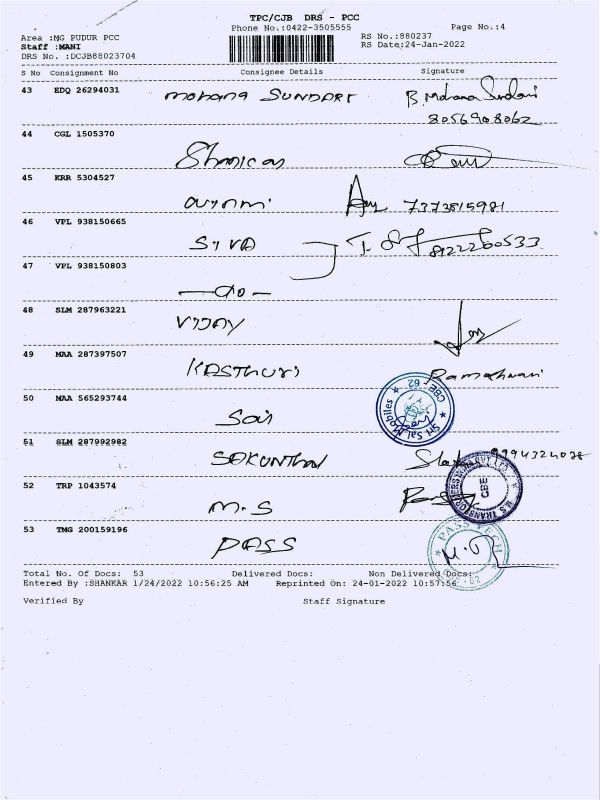 TPC/CJB DRS - PCC
Phone No.:0422-3505555 Page No.:4
Area :MG PUDUR PCC RS No.:880237
Staff :MANI RS Date:24-Jan-2022
DRS No. :DCJB88023704
S No Consignment No Consignee Details Signature
43 EDQ 26294031 Mohana SUNDARI B. Mohana Sundari
8056908062
44 CGL 1505370
45 KRR 5304527 7373815981
46 VPL 938150665 SIVA 8122260533
47 VPL 938150803 -do-
48 SLM 287963221 VIJAY
49 MAA 287397507 KASTHURI
CBE 62
50 MAA 565293744 Sai
Sri Sai Mobiles
51 SLM 287092982 SAKUNTHAL 9994324078
52 TRP 1043574 M.S
CBE
53 TMG 200159196 PASS
PASS TECH
Total No. Of Docs: 53 Delivered Docs: Non Delivered Docs:
Entered By :SHANKAR 1/24/2022 10:56:25 AM Reprinted On: 24-01-2022 10:57:56
Verified By Staff Signature